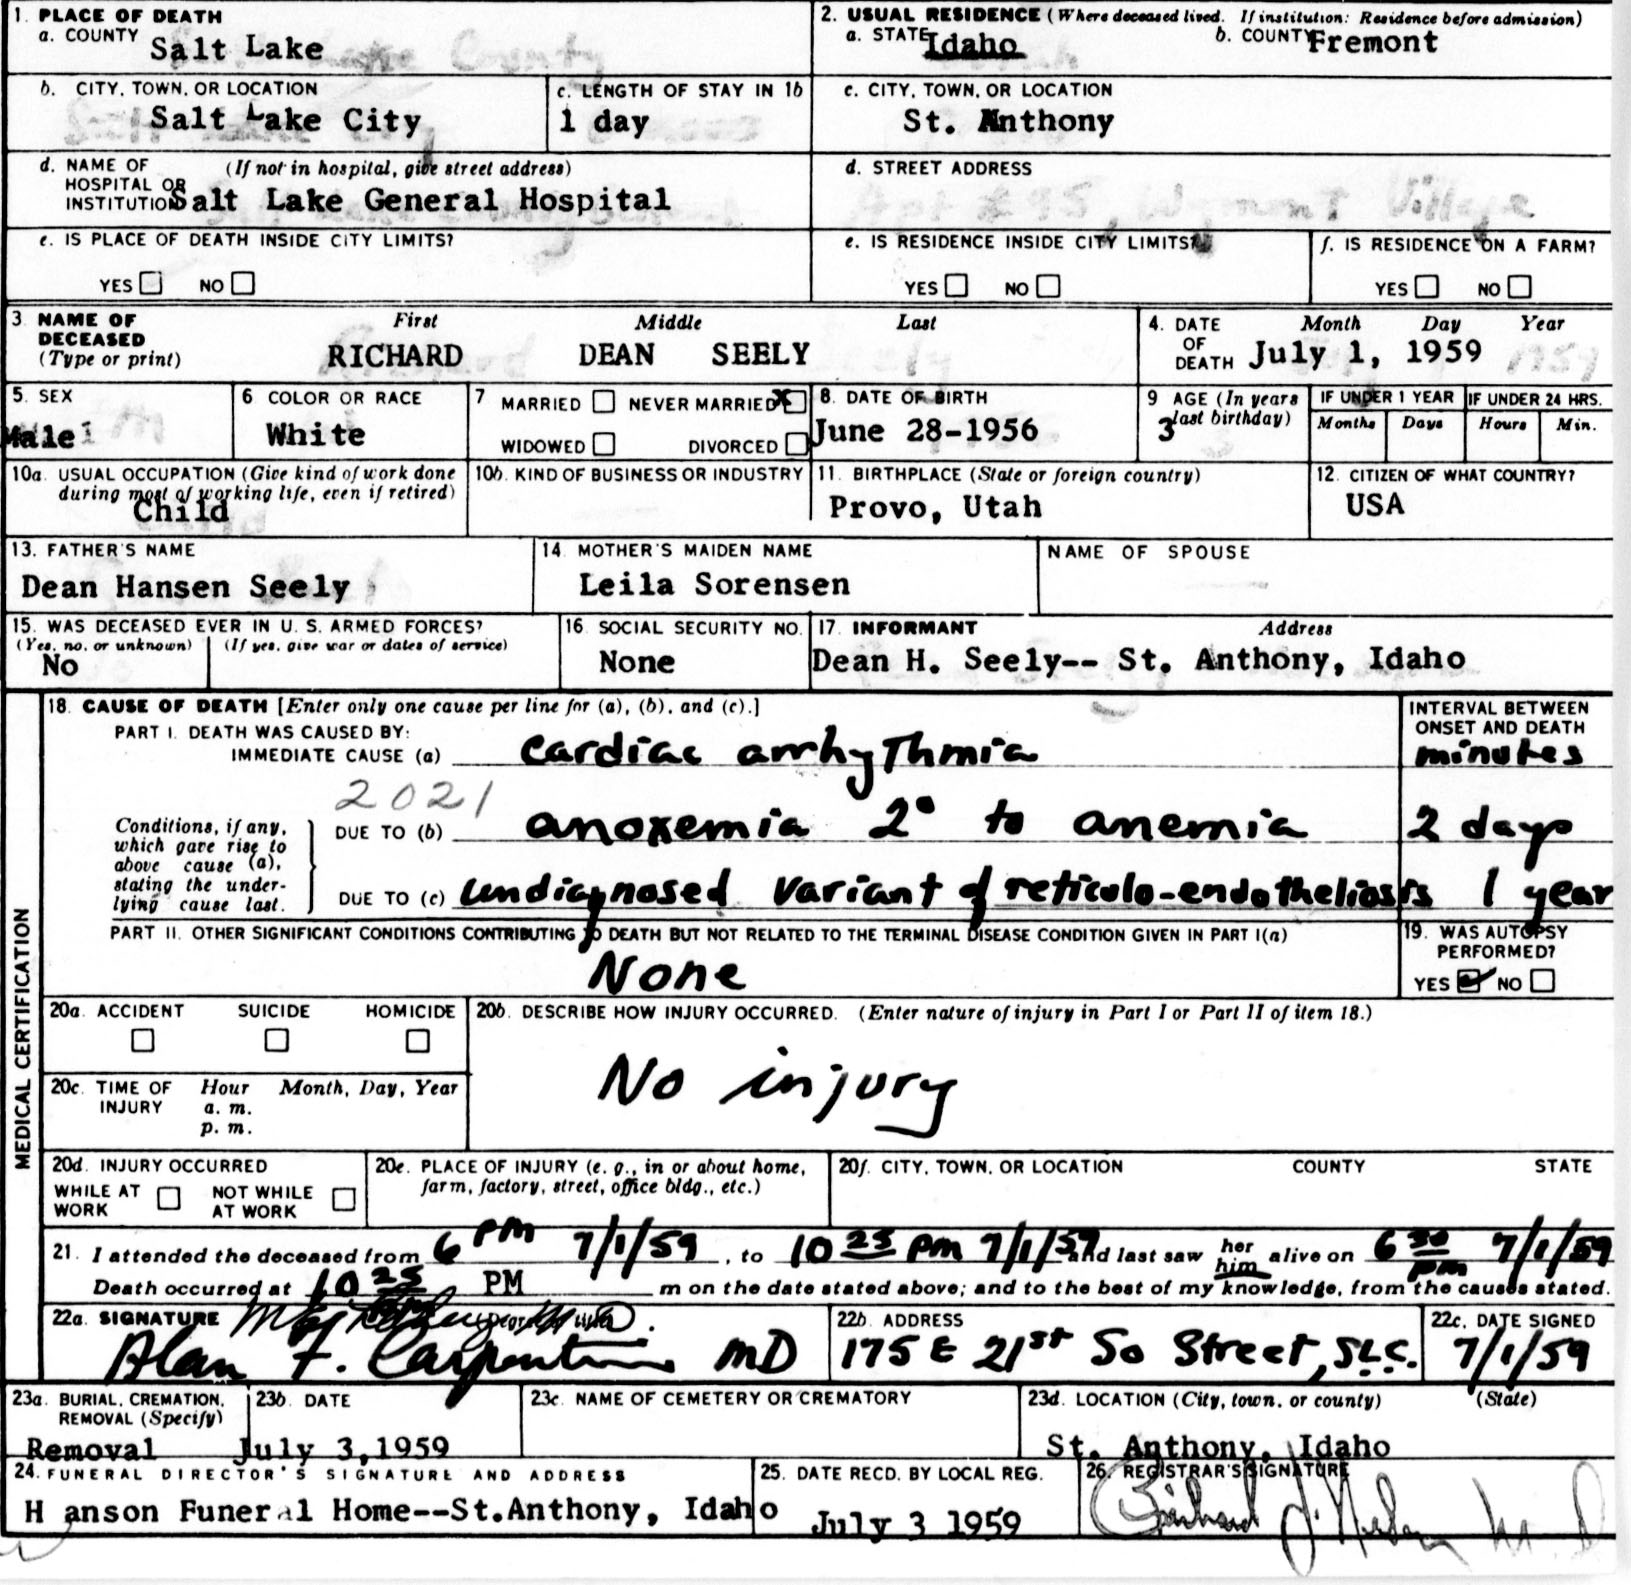 1. PLACE OF DEATH
a. COUNTY Salt Lake
2. USUAL RESIDENCE (Where deceased lived. If institution: Residence before admission)
a. STATE Idaho b. COUNTY Fremont
b. CITY, TOWN, OR LOCATION Salt Lake City
c. LENGTH OF STAY IN 1b 1 day
c. CITY, TOWN, OR LOCATION St. Anthony
d. NAME OF HOSPITAL OR INSTITUTION (If not in hospital, give street address)
Salt Lake General Hospital
d. STREET ADDRESS
Apt # 45, Wymount Village
e. IS PLACE OF DEATH INSIDE CITY LIMITS?
YES NO
e. IS RESIDENCE INSIDE CITY LIMITS?
YES NO
f. IS RESIDENCE ON A FARM?
YES NO
3. NAME OF DECEASED (Type or print)
First Middle Last
RICHARD DEAN SEELY
4. DATE OF DEATH Month Day Year
July 1, 1959
5. SEX Male
6 COLOR OR RACE White
7 MARRIED NEVER MARRIED X
WIDOWED DIVORCED
8. DATE OF BIRTH June 28-1956
9 AGE (In years last birthday) 3
IF UNDER 1 YEAR Months Days
IF UNDER 24 HRS. Hours Min.
10a. USUAL OCCUPATION (Give kind of work done during most of working life, even if retired)
Child
10b. KIND OF BUSINESS OR INDUSTRY
11. BIRTHPLACE (State or foreign country)
Provo, Utah
12. CITIZEN OF WHAT COUNTRY?
USA
13. FATHER'S NAME
Dean Hansen Seely
14 MOTHER'S MAIDEN NAME
Leila Sorensen
NAME OF SPOUSE
15. WAS DECEASED EVER IN U. S. ARMED FORCES?
(Yes, no, or unknown) (If yes, give war or dates of service)
No
16 SOCIAL SECURITY NO.
None
17. INFORMANT Address
Dean H. Seely-- St. Anthony, Idaho
MEDICAL CERTIFICATION
18. CAUSE OF DEATH [Enter only one cause per line for (a), (b), and (c).]
INTERVAL BETWEEN ONSET AND DEATH
PART I. DEATH WAS CAUSED BY:
IMMEDIATE CAUSE (a) cardiac arrhythmia minutes
2021
Conditions, if any, which gave rise to above cause (a), stating the underlying cause last.
DUE TO (b) anoxemia 2° to anemia 2 days
DUE TO (c) undiagnosed variant of reticulo-endotheliosis 1 year
PART II. OTHER SIGNIFICANT CONDITIONS CONTRIBUTING TO DEATH BUT NOT RELATED TO THE TERMINAL DISEASE CONDITION GIVEN IN PART I(a)
None
19. WAS AUTOPSY PERFORMED?
YES NO
20a. ACCIDENT SUICIDE HOMICIDE
20b. DESCRIBE HOW INJURY OCCURRED. (Enter nature of injury in Part I or Part II of item 18.)
No injury
20c. TIME OF INJURY Hour Month, Day, Year
a. m.
p. m.
20d. INJURY OCCURRED
WHILE AT WORK NOT WHILE AT WORK
20e. PLACE OF INJURY (e. g., in or about home, farm, factory, street, office bldg., etc.)
20f. CITY, TOWN, OR LOCATION COUNTY STATE
21. I attended the deceased from 6 pm 7/1/59, to 10 25 pm 7/1/59 and last saw her him alive on 6 30 pm 7/1/59
Death occurred at 10 25 pm PM m on the date stated above; and to the best of my knowledge, from the causes stated.
22a. SIGNATURE
Alan F. Carpenter MD
22b. ADDRESS
175 E 21st So Street, S.L.C.
22c. DATE SIGNED
7/1/59
23a. BURIAL, CREMATION, REMOVAL (Specify)
Removal
23b. DATE
July 3,1959
23c. NAME OF CEMETERY OR CREMATORY
23d. LOCATION (City, town, or county) (State)
St. Anthony, Idaho
24. FUNERAL DIRECTOR'S SIGNATURE AND ADDRESS
Hanson Funeral Home--St.Anthony, Idaho
25. DATE RECD. BY LOCAL REG.
July 3 1959
26. REGISTRAR'S SIGNATURE